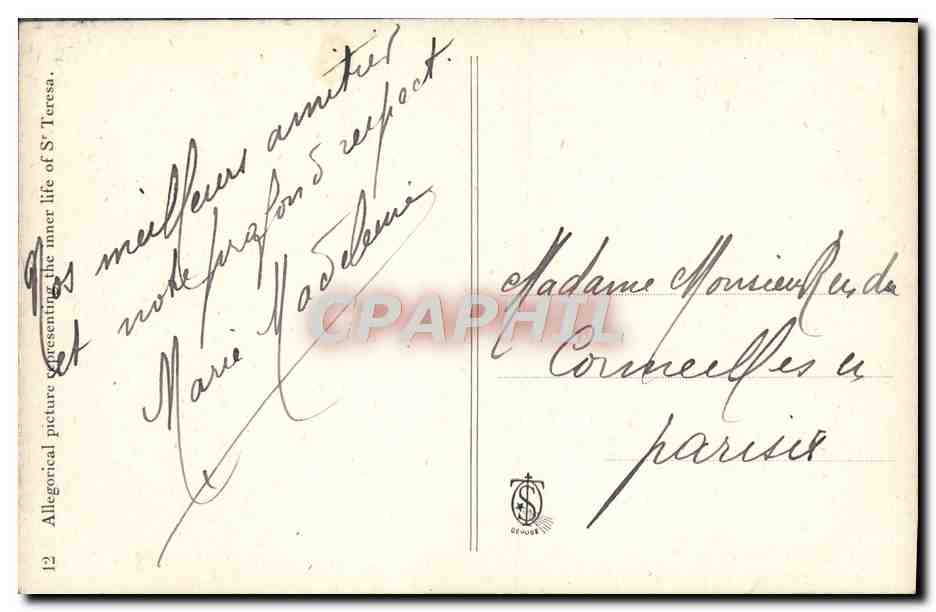 12 Allegorical picture representing the inner life of Sr Teresa.
Nos meilleurs amitiés
et notre profond respect.
Marie Madeleine
CPAPHIL
Madame Monsieur
Cormeilles en
parisis